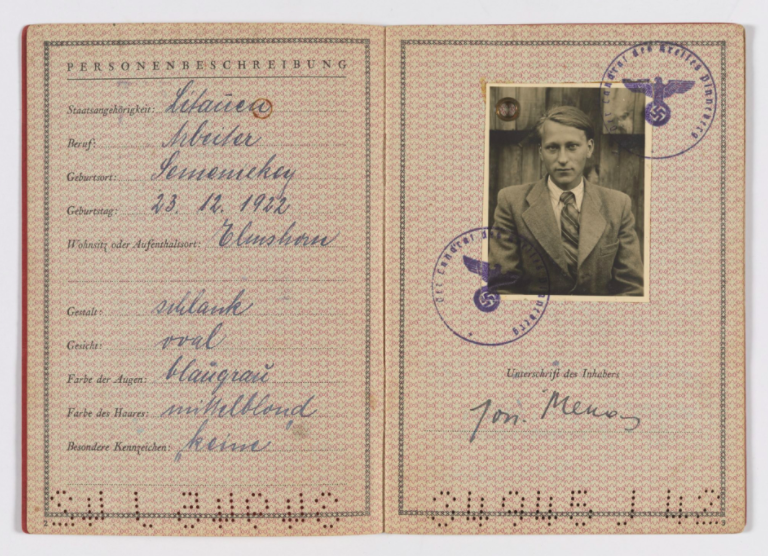 PERSONENBESCHREIBUNG
Staatsangehörigkeit: Litauen
Beruf: Arbeiter
Geburtsort:
Geburtstag: 23. 12. 1922
Wohnsitz oder Aufenthaltsort: Elmshorn
Gestalt: schlank
Gesicht: oval
Farbe der Augen: blaugrau
Farbe des Haares: mittelblond
Besondere Kennzeichen: keine
2
Der Landrat des Kreises Pinneberg
Der Landrat des Kreises Pinneberg
Unterschrift des Inhabers
Jon. Mekas
3